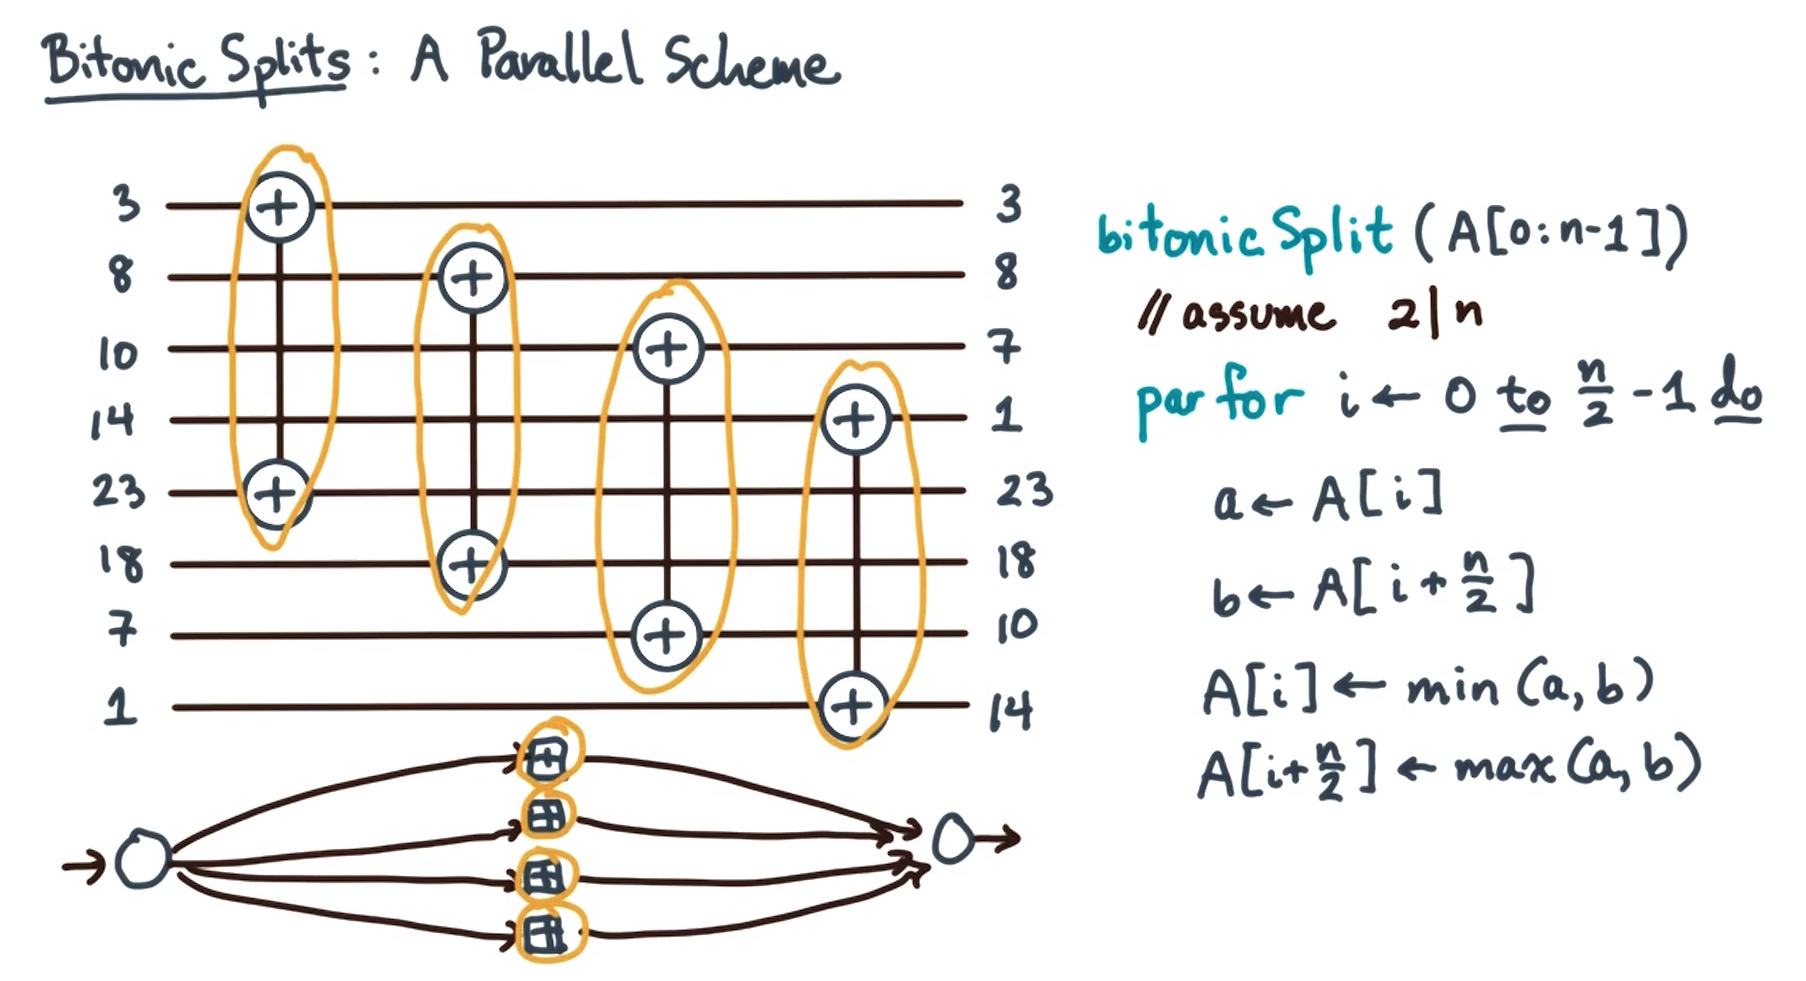 Bitonic Splits: A Parallel Scheme
3 + 3
8 + 8
10 + 7
14 + 1
23 + 23
18 + 18
7 + 10
1 + 14
+
+
+
+
bitonicSplit (A[0:n-1])
// assume 2|n
parfor i ← 0 to n/2 -1 do
a ← A[i]
b ← A[i + n/2]
A[i] ← min (a, b)
A[i+ n/2] ← max (a, b)